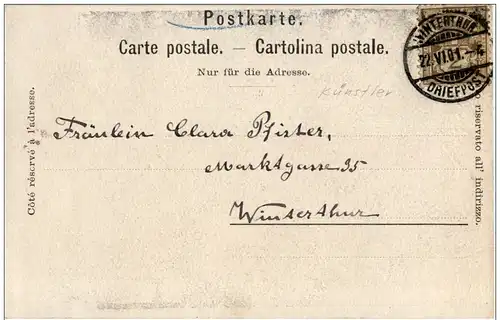 Postkarte.
Carte postale. — Cartolina postale.
Nur für die Adresse.
Künstler
WINTERTHUR
22.VI.01.
BRIEFPOST
Fräulein Clara Pfister,
Marktgasse 35
Winterthur
Côté réservé à l'adresse.
riservato all' indirizzo.